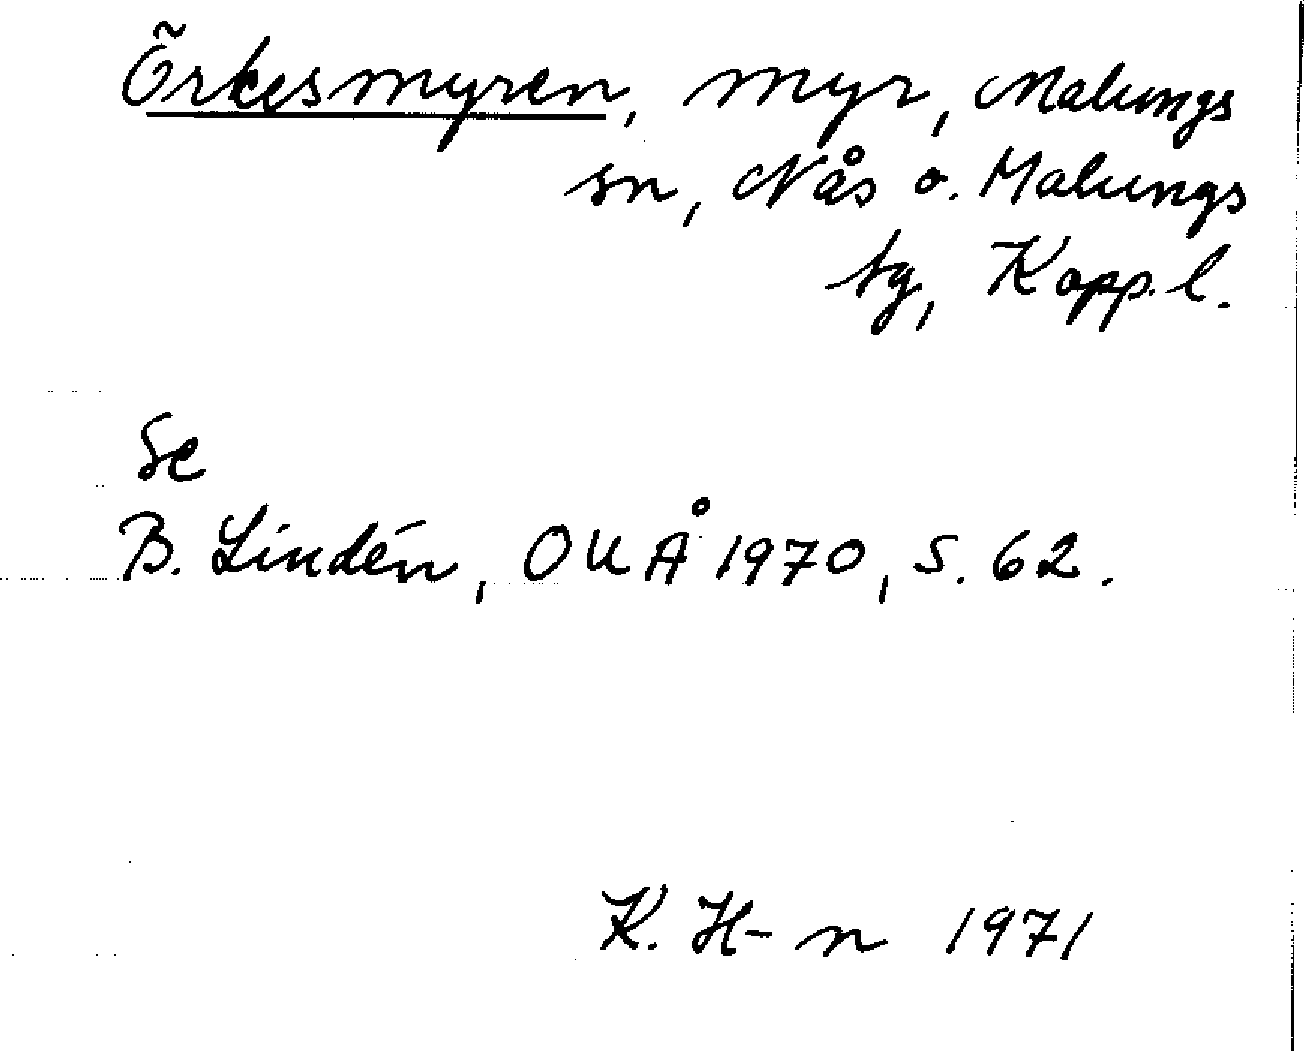 Örkesmyren, myr, Malungs
sn, Nås o. Malungs
tg, Kopp. l.
Se
B. Lindén, OUÅ 1970, s. 62.
K. H-n 1971